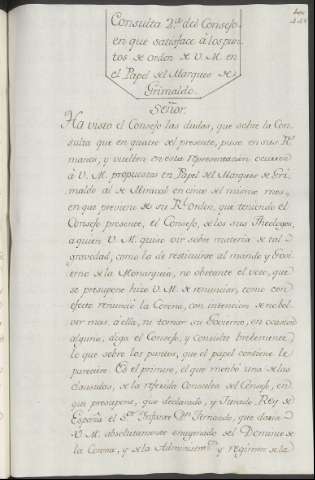 Consulta 2.ª del Consejo
en que satisface à los pun
tos de orden de V. M. en
el Papel del Marques de
Grimaldo.
Señor.
Ha visto el Consejo las dudas, que sobre la Con
sulta que en quatro del presente, puso en sus R.s
manos, y vuelven en esta representacion ocurren
à V. M. propuestas en Papel del Marques de Gri
maldo al de Miraval en cinco del mismo mes,
en que previene de su R.l orden, que teniendo el
Consejo presente, el Consejo, de los sus Theologos,
a quien V. M. quiso oir sobre materia de tal
gravedad, como la de restituirse al mando y Govi
erno de la Monarquia, no obstante el voto, que
se presupone hizo V. M. de renunciar, como con
efecto renunciò la Corona, con intencion de no bol
ver mas à ella, ni tomar su Govierno, en ocasion
alguna, diga el Consejo, y consulte brebemente
lo que sobre los puntos, que el papel contiene le
pareciere. Es el primero, el que menbió una de las
clausulas, de la referida Consulta del Consejo, en
que presupone, que declarado, y Jurado Rey de
España el S.or Infante D.n Fernando, que daria
V. M. absolutamente enagenado del Dominio de
la Corona, y de la Administra.on y regimen de la